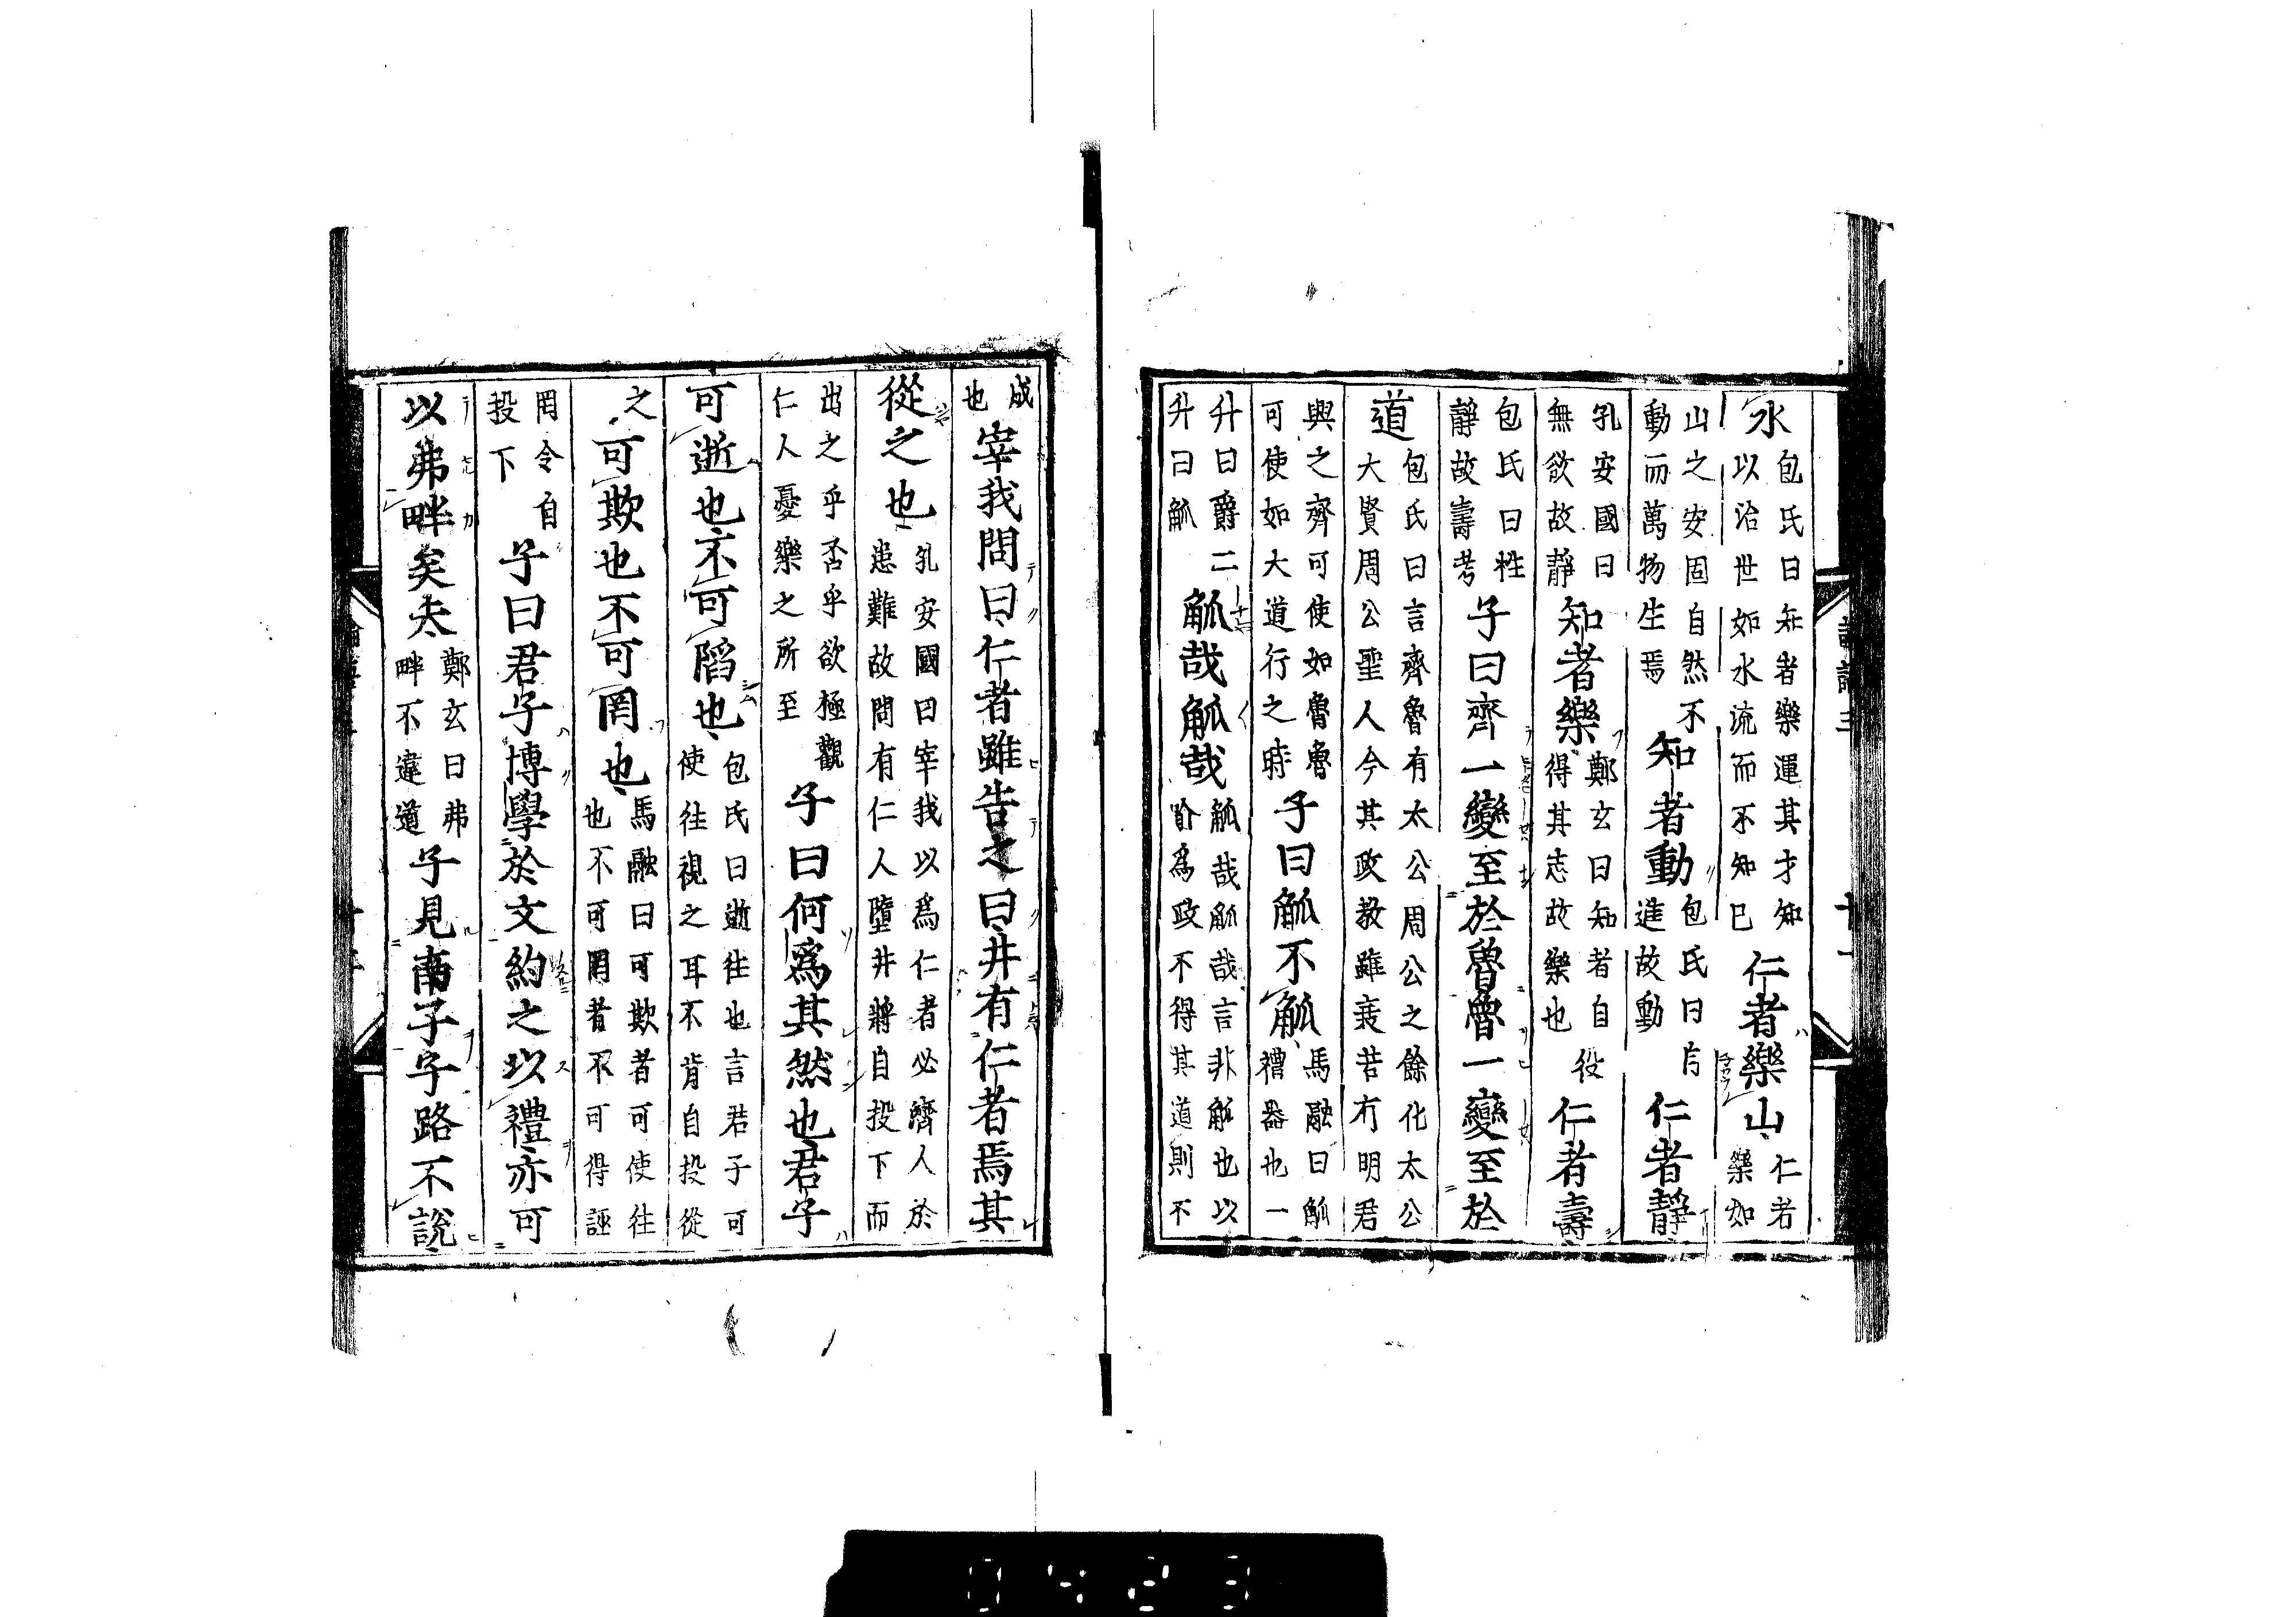 水包氏曰知者樂運其才知以治世如水流而不知已仁者樂山仁者樂如
山之安固自然不動而萬物生焉知者動包氏曰自進故動仁者靜
孔安國曰無欲故靜知者樂鄭玄曰知者自役得其志故樂也仁者壽
包氏曰性靜故壽考子曰齊一變至於魯魯一變至於
道包氏曰言齊魯有太公周公之餘化太公大賢周公聖人今其政教雖衰若有明君
興之齊可使如魯魯可使如大道行之時子曰觚不觚馬融曰觚禮器也一
升曰爵二升曰觚觚哉觚哉觚哉觚哉言非觚也以喻爲政不得其道則不
成也宰我問曰仁者雖告之曰井有仁者焉其
從之也孔安國曰宰我以爲仁者必濟人於患難故問有仁人墮井將自投下而
出之乎否乎欲極觀仁人憂樂之所至子曰何爲其然也君子
可逝也不可陷也包氏曰逝往也言君子可使往視之耳不肯自投從
之可欺也不可罔也馬融曰可欺者可使往也不可罔者不可得誣
罔令自投下子曰君子博學於文約之以禮亦可
以弗畔矣夫鄭玄曰弗畔不違道子見南子子路不說
0423